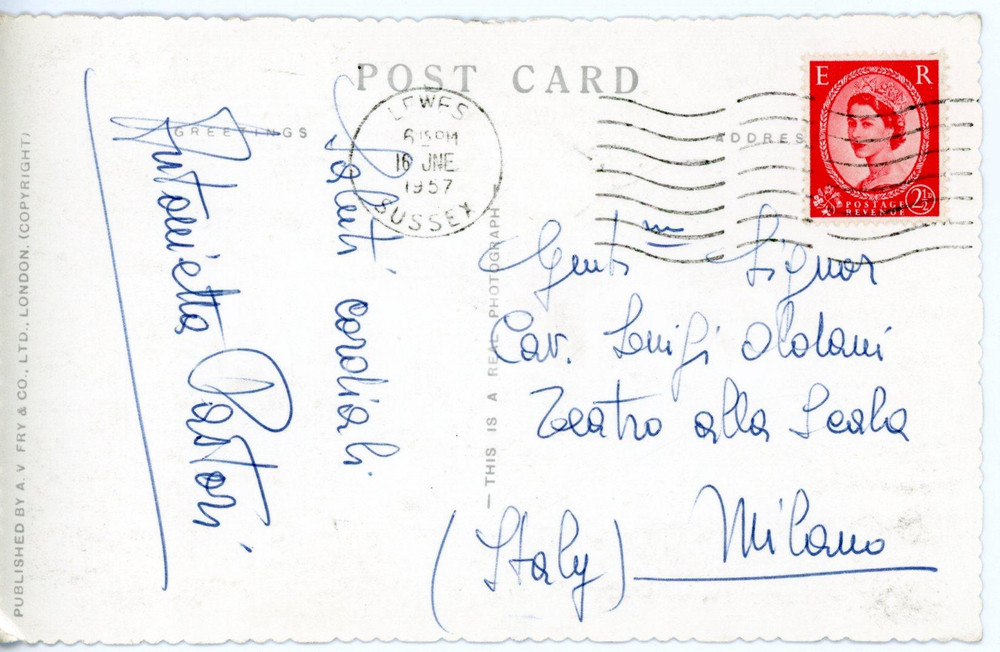 POST CARD
GREETINGS
ADDRES
E R
POSTAGE
REVENUE
2½D
LEWES
6 15 PM
16 JNE
1957
SUSSEX
Saluti cordiali
Antonietta Pastori
Gent.m Signor
Cav. Luigi Oldani
Teatro alla Scala
Milano
(Italy)
— THIS IS A REAL PHOTOGRAPH —
PUBLISHED BY A. V FRY & CO., LTD., LONDON, (COPYRIGHT)